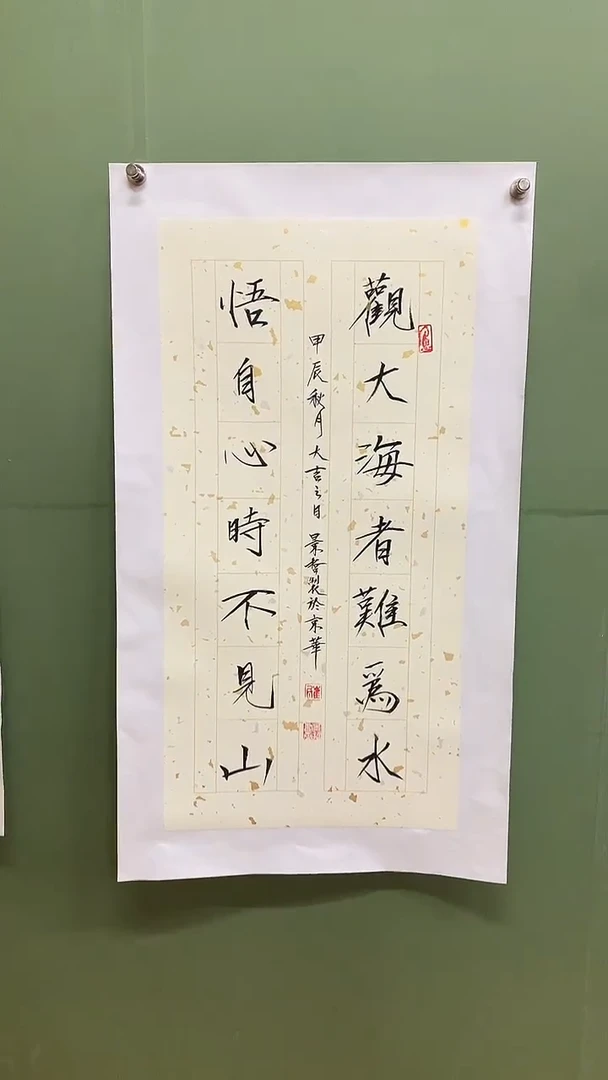 觀大海者難為水
悟自心時不見山
甲辰秋月大吉之日景春製於京華